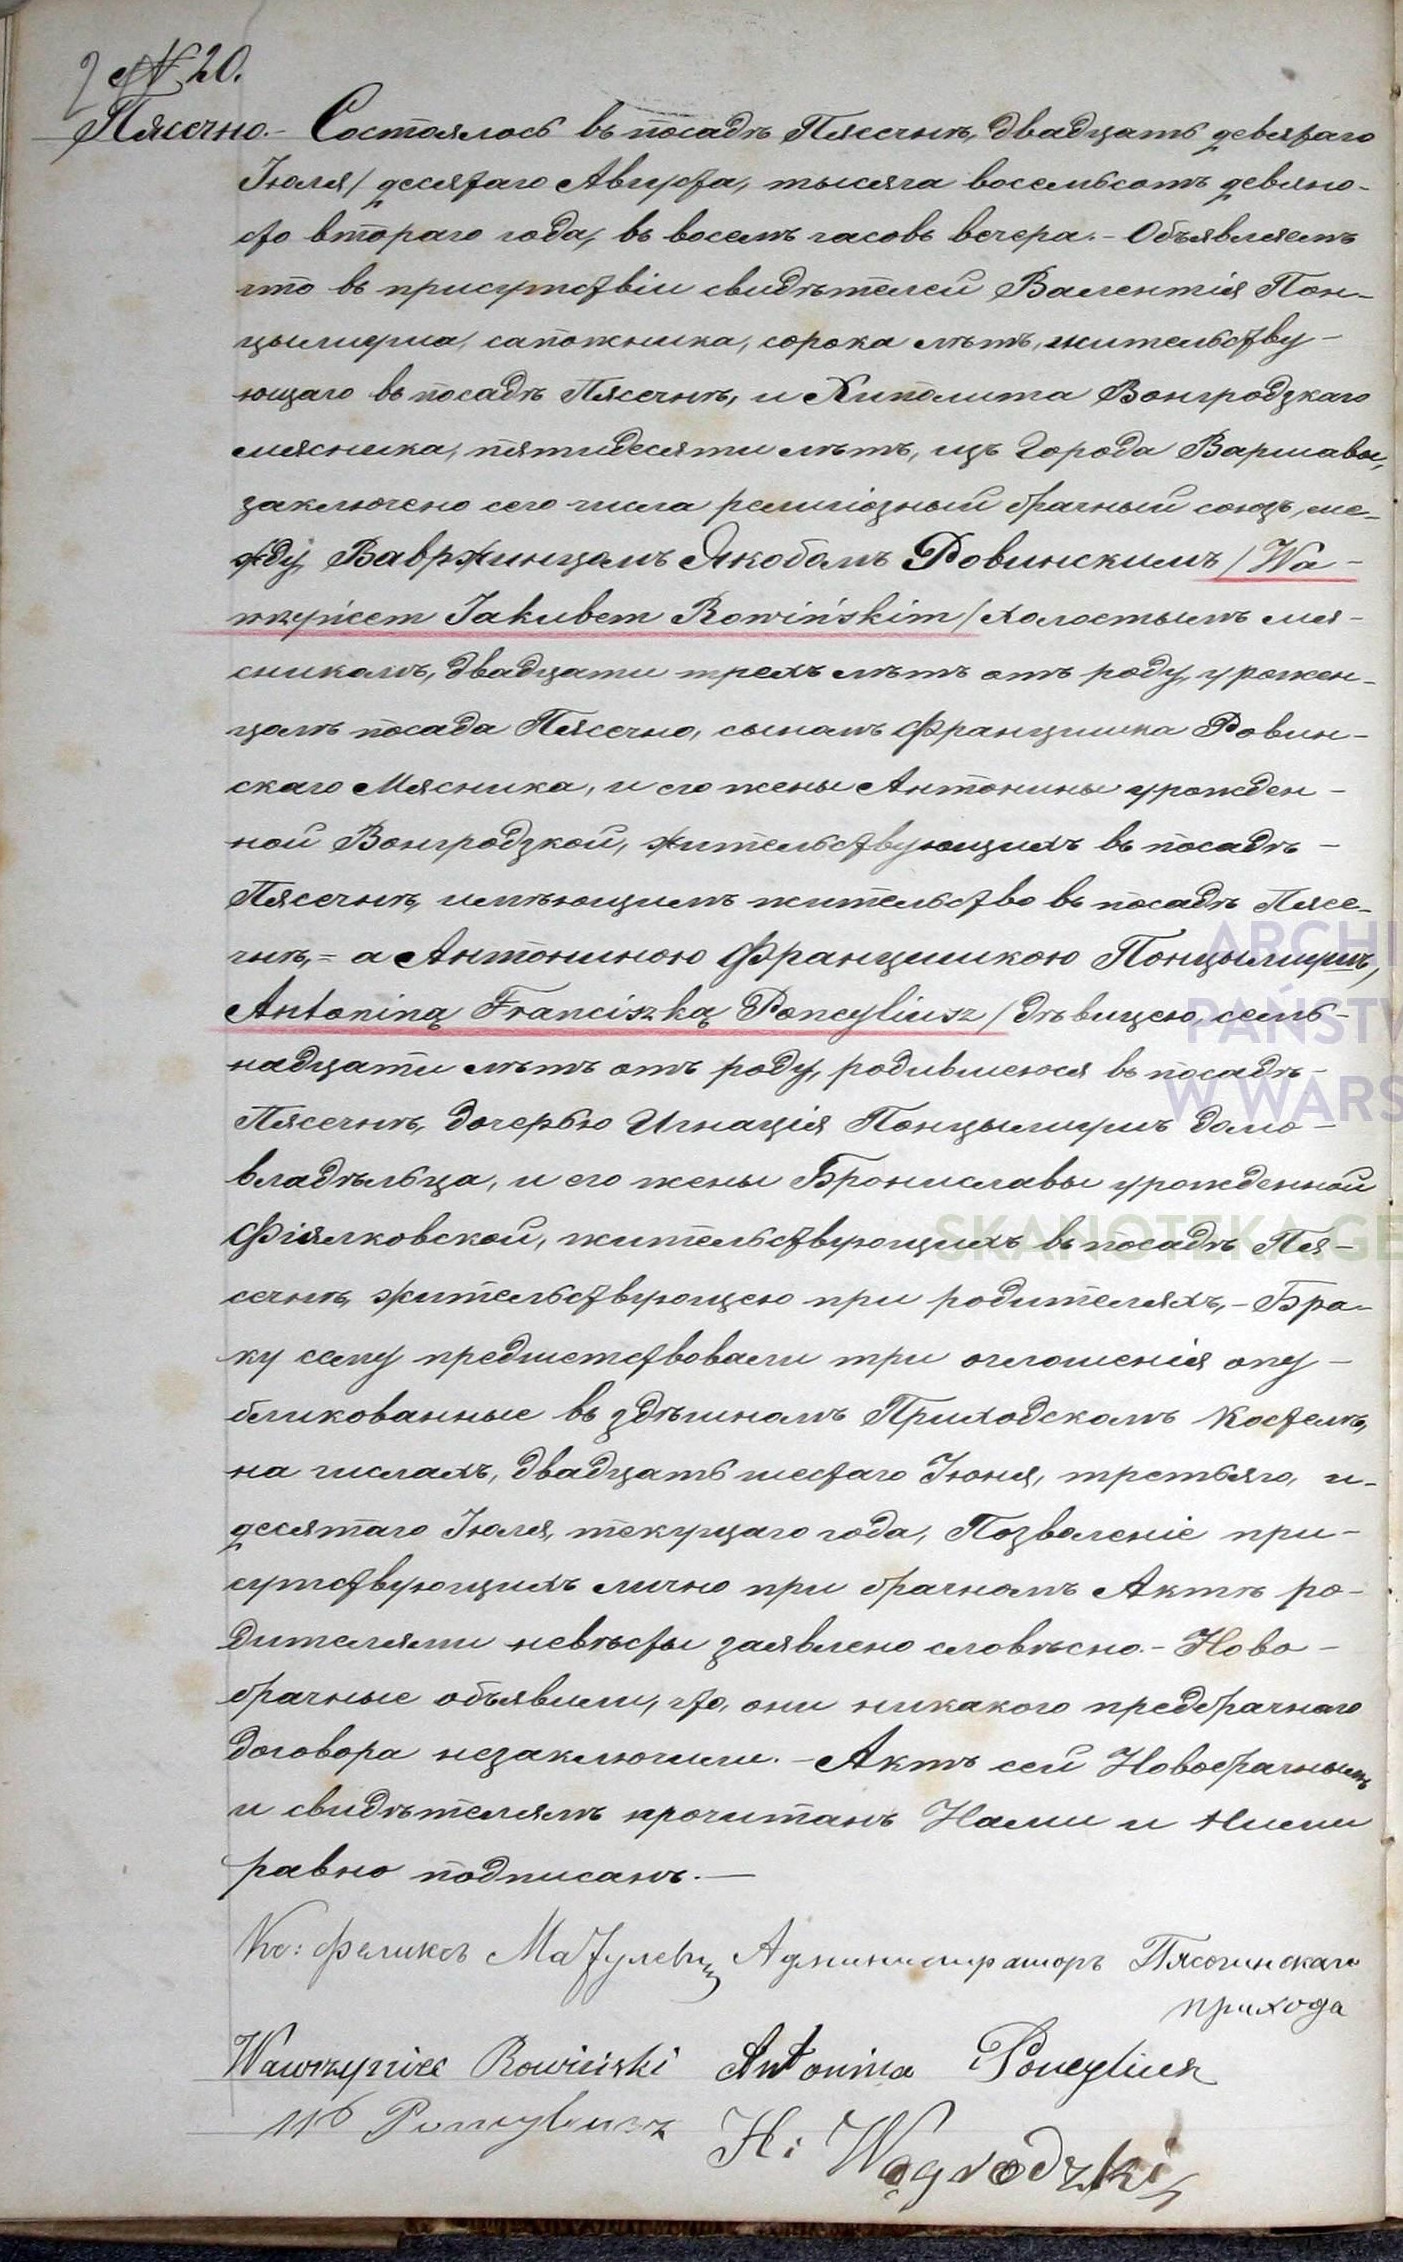 № 20.
Пясечно. – Состоялось въ посадѣ Пясечнѣ, двадцать девятаго
Іюля / десятаго Августа, тысяча восемьсотъ девяно-
сто втораго года, въ восемъ часовъ вечера. – Объявляемъ
что въ присутствіи свидѣтелей Валентія Пон-
цылиуша, сапожника, сорока лѣтъ, жительству-
ющаго въ посадѣ Пясечнѣ, и Хиполита Вонгродзкаго
мясника, пятидесяти лѣтъ, изъ Города Варшавы,
заключено сего числа религіозный брачный союзъ, ме-
жду Вавржинцомъ Якобомъ Ровинскимъ / Wa-
wrzyńcem Jakubem Rowińskim / холостымъ мя-
сникомъ, двадцати трехъ лѣтъ отъ роду, урожен-
цомъ посада Пясечно, сыномъ Францишка Ровин-
скаго Мясника, и его жены Антонины урожден-
ной Вонгродзкой, жительствующихъ въ посадѣ –
Пясечнѣ, имѣющимъ жительство въ посадѣ Пясе-
чнѣ, = а Антониною Францишкою Понцылиушъ,
Antoniną Franciszką Poncyliusz / дѣвицею, семь-
надцати лѣтъ отъ роду, родившеюся въ посадѣ –
Пясечнѣ, дочерью Игнація Понцылиушъ домо-
владѣльца, и его жены Брониславы урожденной
Фіялковской, жительствующихъ въ посадѣ Пя-
сечнѣ, жительствующею при родителяхъ, – Бра-
ку сему предшествовали три оглошенія опу-
бликованные въ здѣшномъ Приходскомъ Костелѣ,
на числахъ, двадцать шестаго Іюня, третьяго, и-
десятаго Іюля, текущаго года, Позволеніе при-
сутствующихъ лично при брачномъ Актѣ ро-
дителями невѣсты заявлено словѣсно. – Ново-
брачные объявили, что, они никакого предбрачнаго
договора незаключили. – Актъ сей Новобрачнымъ
и свидѣтелямъ прочитанъ Нами и Ними
равно подписанъ. —
Кс: Феликсъ Матулевич Администраторъ Пясечинскаго
прихода
Wawrzyniec Rowiński Antonina Poncyliusz
Poncyliusz H: Wągrodzki
ARCHI
PAŃSTW
W WARS
SKANOTEKA.GE